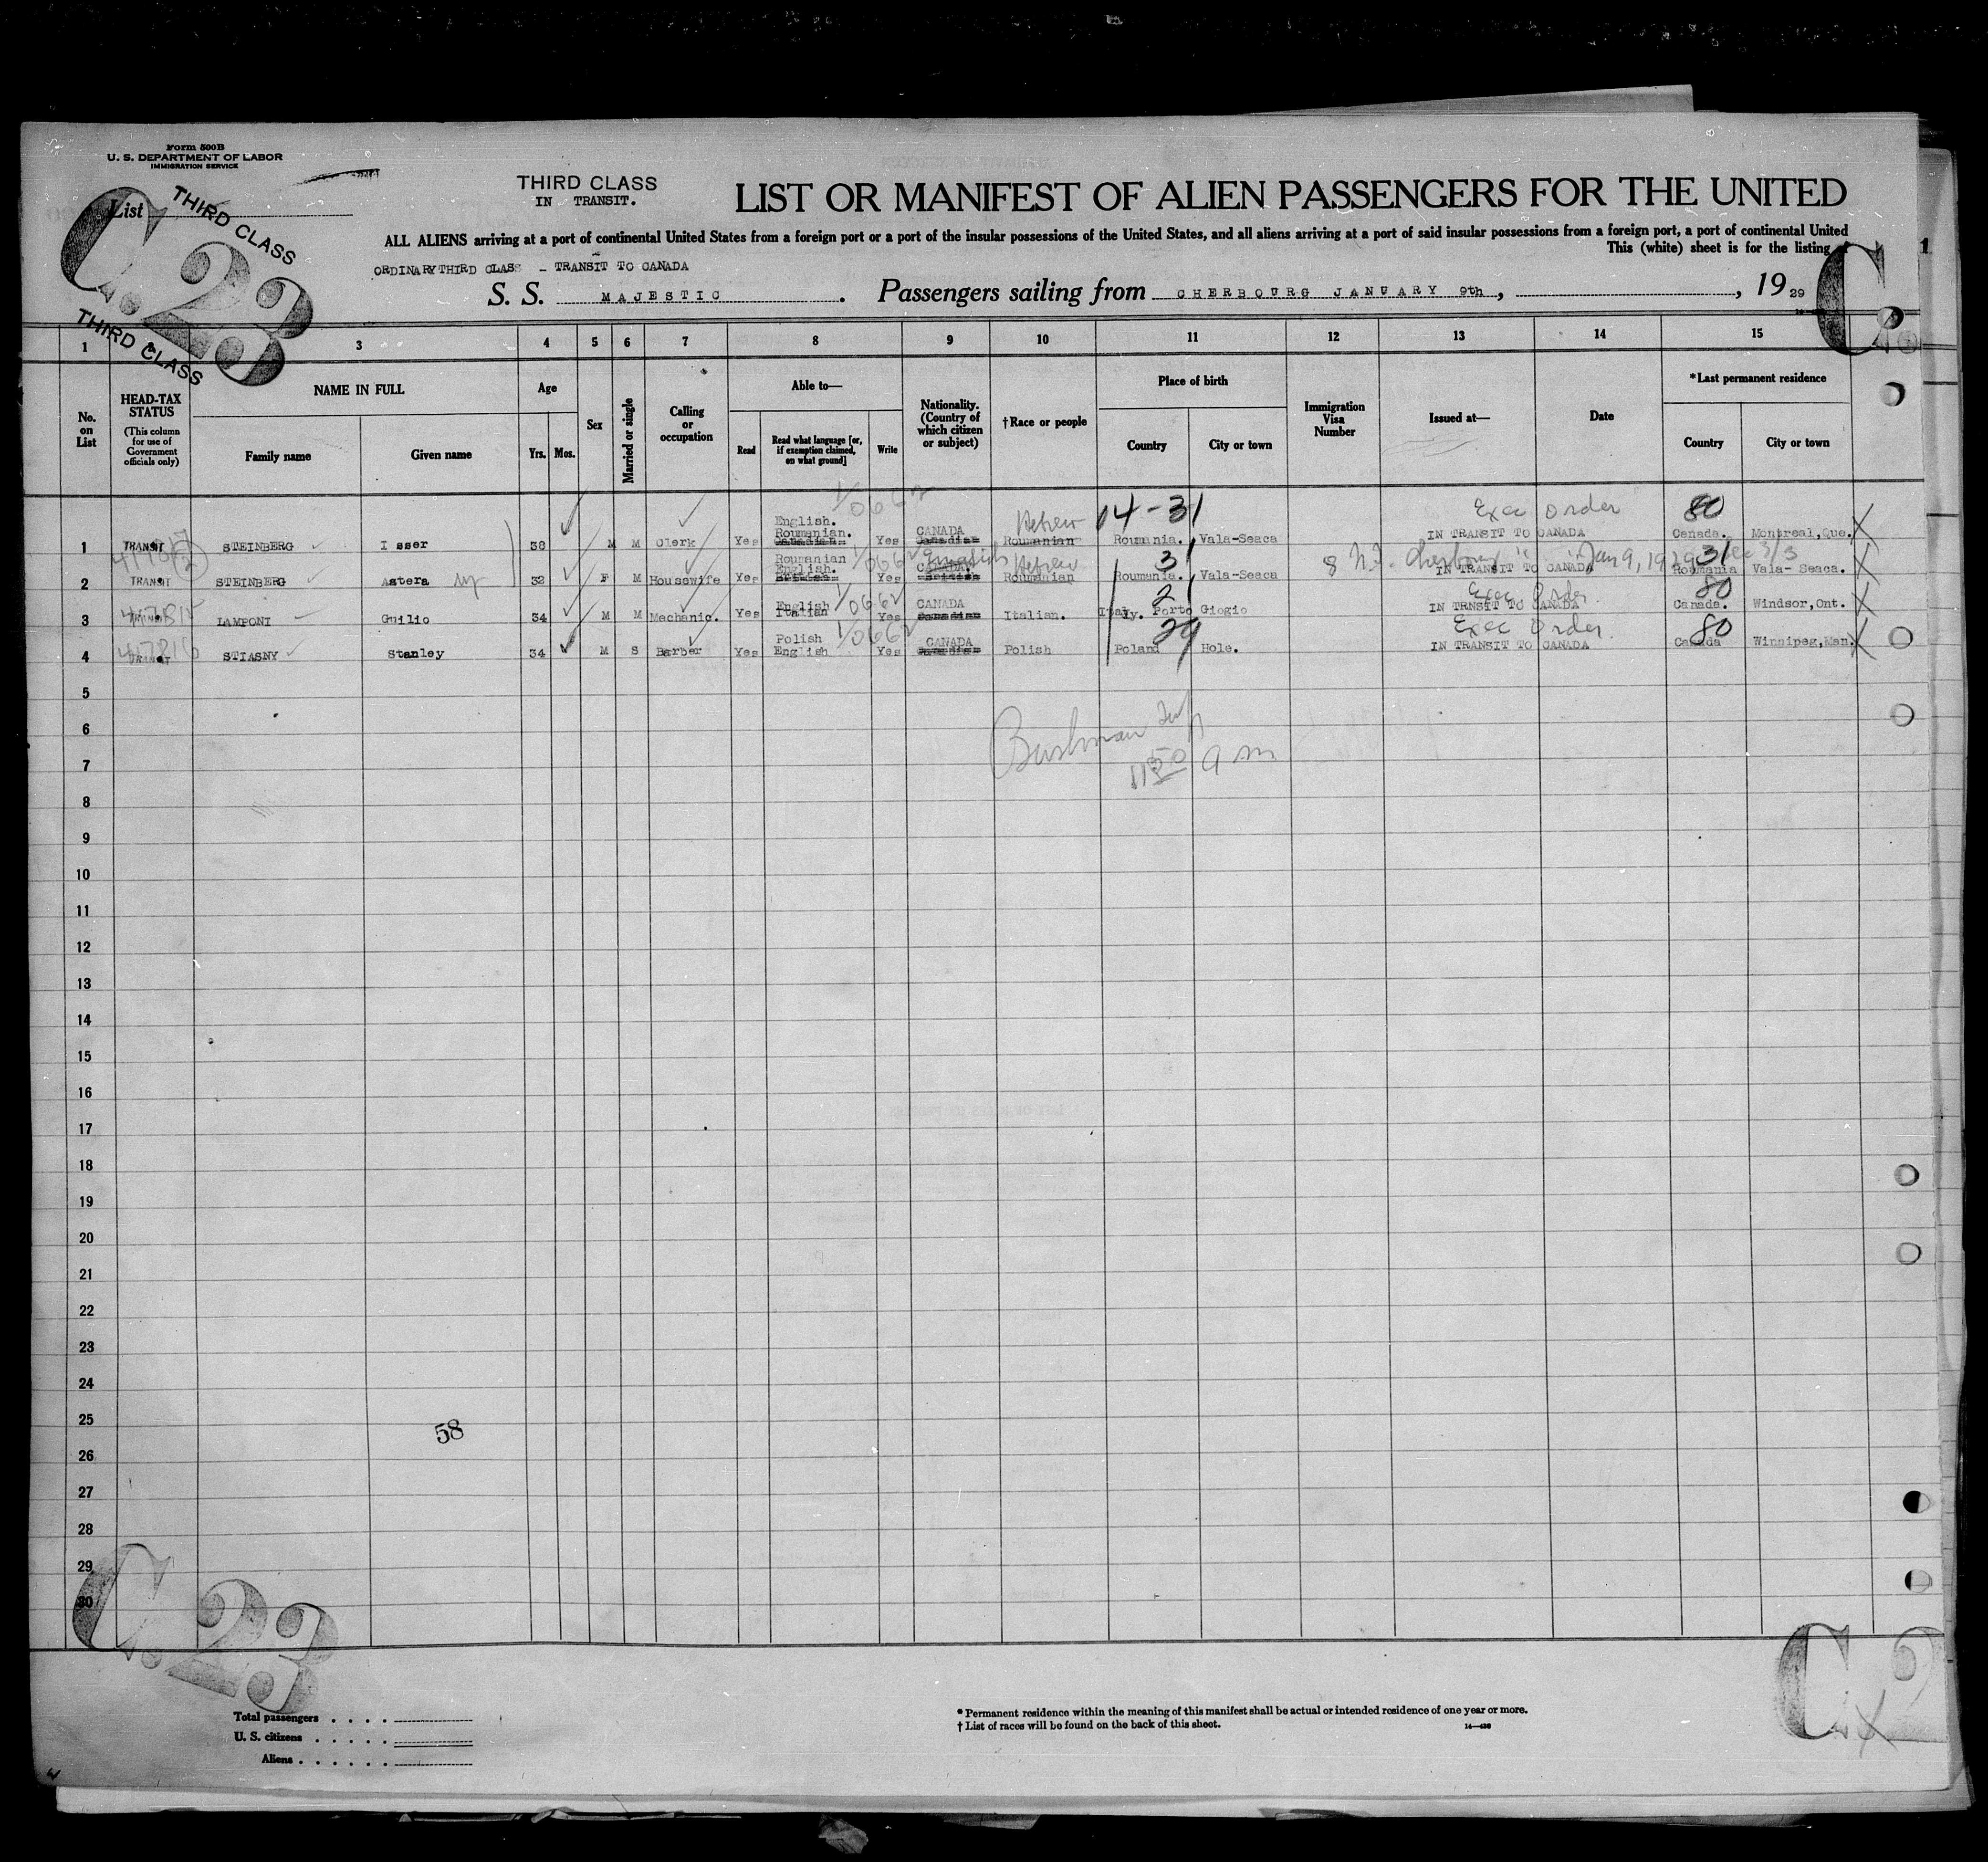 Form 500B
U. S. DEPARTMENT OF LABOR
IMMIGRATION SERVICE
List
THIRD CLASS
C.23
THIRD CLASS
THIRD CLASS
IN TRANSIT.
LIST OR MANIFEST OF ALIEN PASSENGERS FOR THE UNITED
ALL ALIENS arriving at a port of continental United States from a foreign port or a port of the insular possessions of the United States, and all aliens arriving at a port of said insular possessions from a foreign port, a port of continental United
This (white) sheet is for the listing
1
ORDINARY THIRD CLASS - TRANSIT TO CANADA
S. S. MAJESTIC. Passengers sailing from CHERBOURG JANUARY 9th, , 19 29
C
1 2 3 4 5 6 7 8 9 10 11 12 13 14 15
No. on List
HEAD-TAX STATUS
(This column for use of Government officials only)
NAME IN FULL
Family name Given name
Age
Yrs. Mos.
Sex
Married or single
Calling or occupation
Able to—
Read Read what language [or, if exemption claimed, on what ground] Write
Nationality. (Country of which citizen or subject)
†Race or people
Place of birth
Country City or town
Immigration Visa Number
Issued at—
Date
*Last permanent residence
Country City or town
1/0662 14-31 Exec Order 80
English. Hebrew
1 TRANSIT STEINBERG Isser 38 M M Clerk Yes Roumanian. Canadian. Yes CANADA Canadian Roumanian Roumania. Vala-Seaca IN TRANSIT TO CANADA Canada. Montreal,Que. X
Roumanian 1/0662 Hebrew 31 Cherbourg Jan 9, 1929 31
2 TRANSIT STEINBERG Astera 32 F M Housewife Yes English. British. Yes CANADA. British Roumanian Roumania. Vala-Seaca IN TRANSIT TO CANADA Roumania Vala- Seaca. X
417815 English 1/0662 21 Exec Order 80
3 TRANSIT LAMPONI Guilio 34 M M Mechanic. Yes Italian Yes CANADA Canadian Italian. Italy. Porto Giogio IN TRNSIT TO CANADA Canada. Windsor,Ont. X
417816 Polish 1/0662 29 Exec Order. 80
4 TRANSIT STIASNY Stanley 34 M S Barber Yes English Yes CANADA Canadian Polish Poland Hole. IN TRANSIT TO CANADA Canada Winnipeg,Man. X
5
6
7
1150 a m
8
9
10
11
12
13
14
15
16
17
18
19
20
21
22
23
24
25
58
26
27
28
29
30
C.23
C.2
Total passengers
U. S. citizens
Aliens
* Permanent residence within the meaning of this manifest shall be actual or intended residence of one year or more.
† List of races will be found on the back of this sheet.
14—430